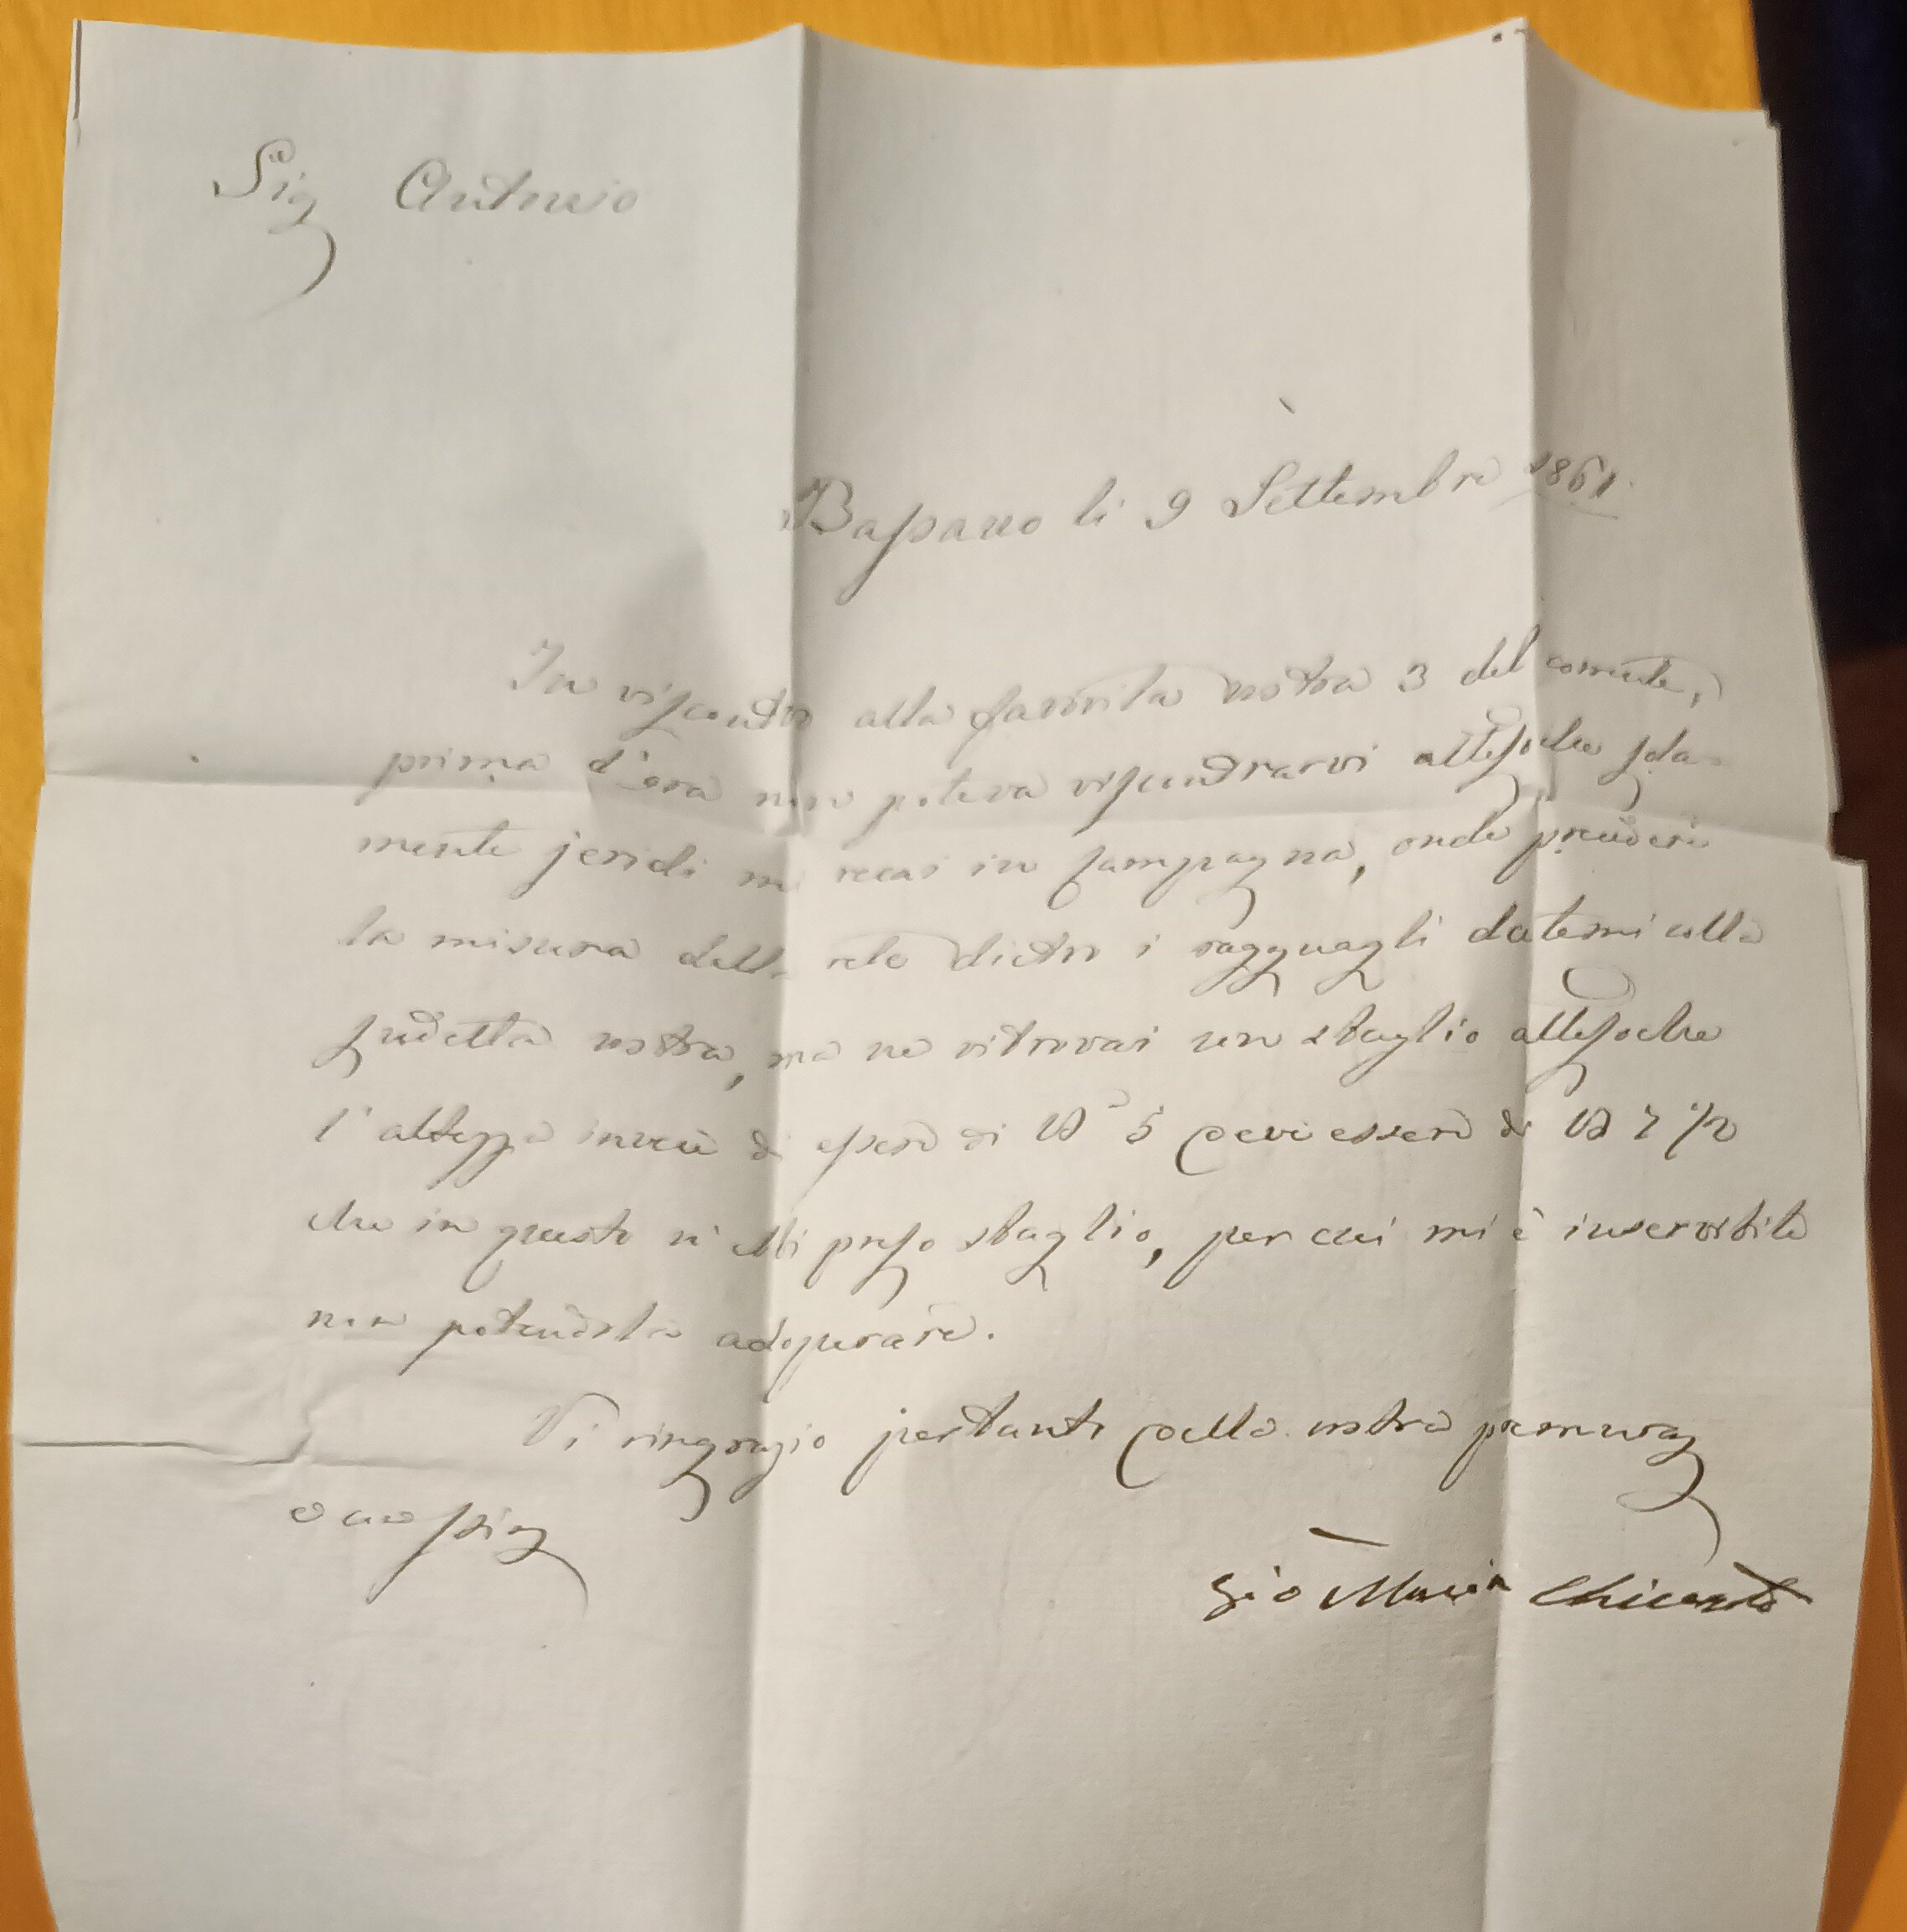 Sig Antonio
Bassano li 9 Settembre 1861.
In riscontro alla favorita vostra 3 del corrente,
prima d'ora non poteva riscontrarvi attesoche sola-
mente jeridi mi recai in campagna, onde prendere
la misura della rete dietro i ragguagli datemi colla
sudetta vostra, ma ne ritrovai un sbaglio attesoche
l'altezza invece di essere di 5 deve essere di 7 1/2
che in questo vi preso sbaglio, per cui mi è inservibile
non potendola adoperare.
Vi ringrazio pertanto della vostra premura
Gio Maria